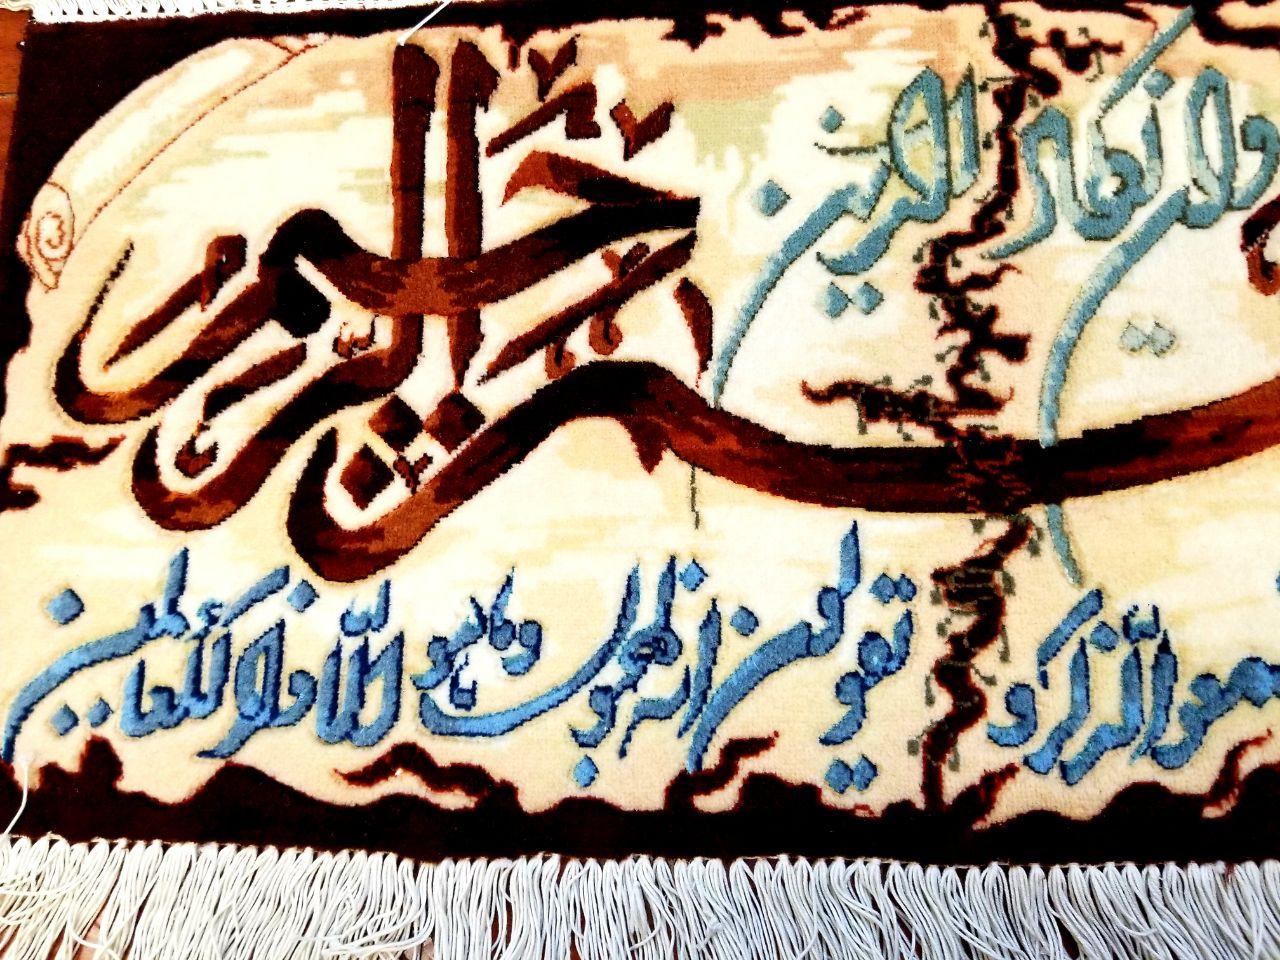 وان یکاد الذین
الرحمن الرحیم
الذکر و یقولون انه لمجنون و ما هو الا ذکر للعالمین